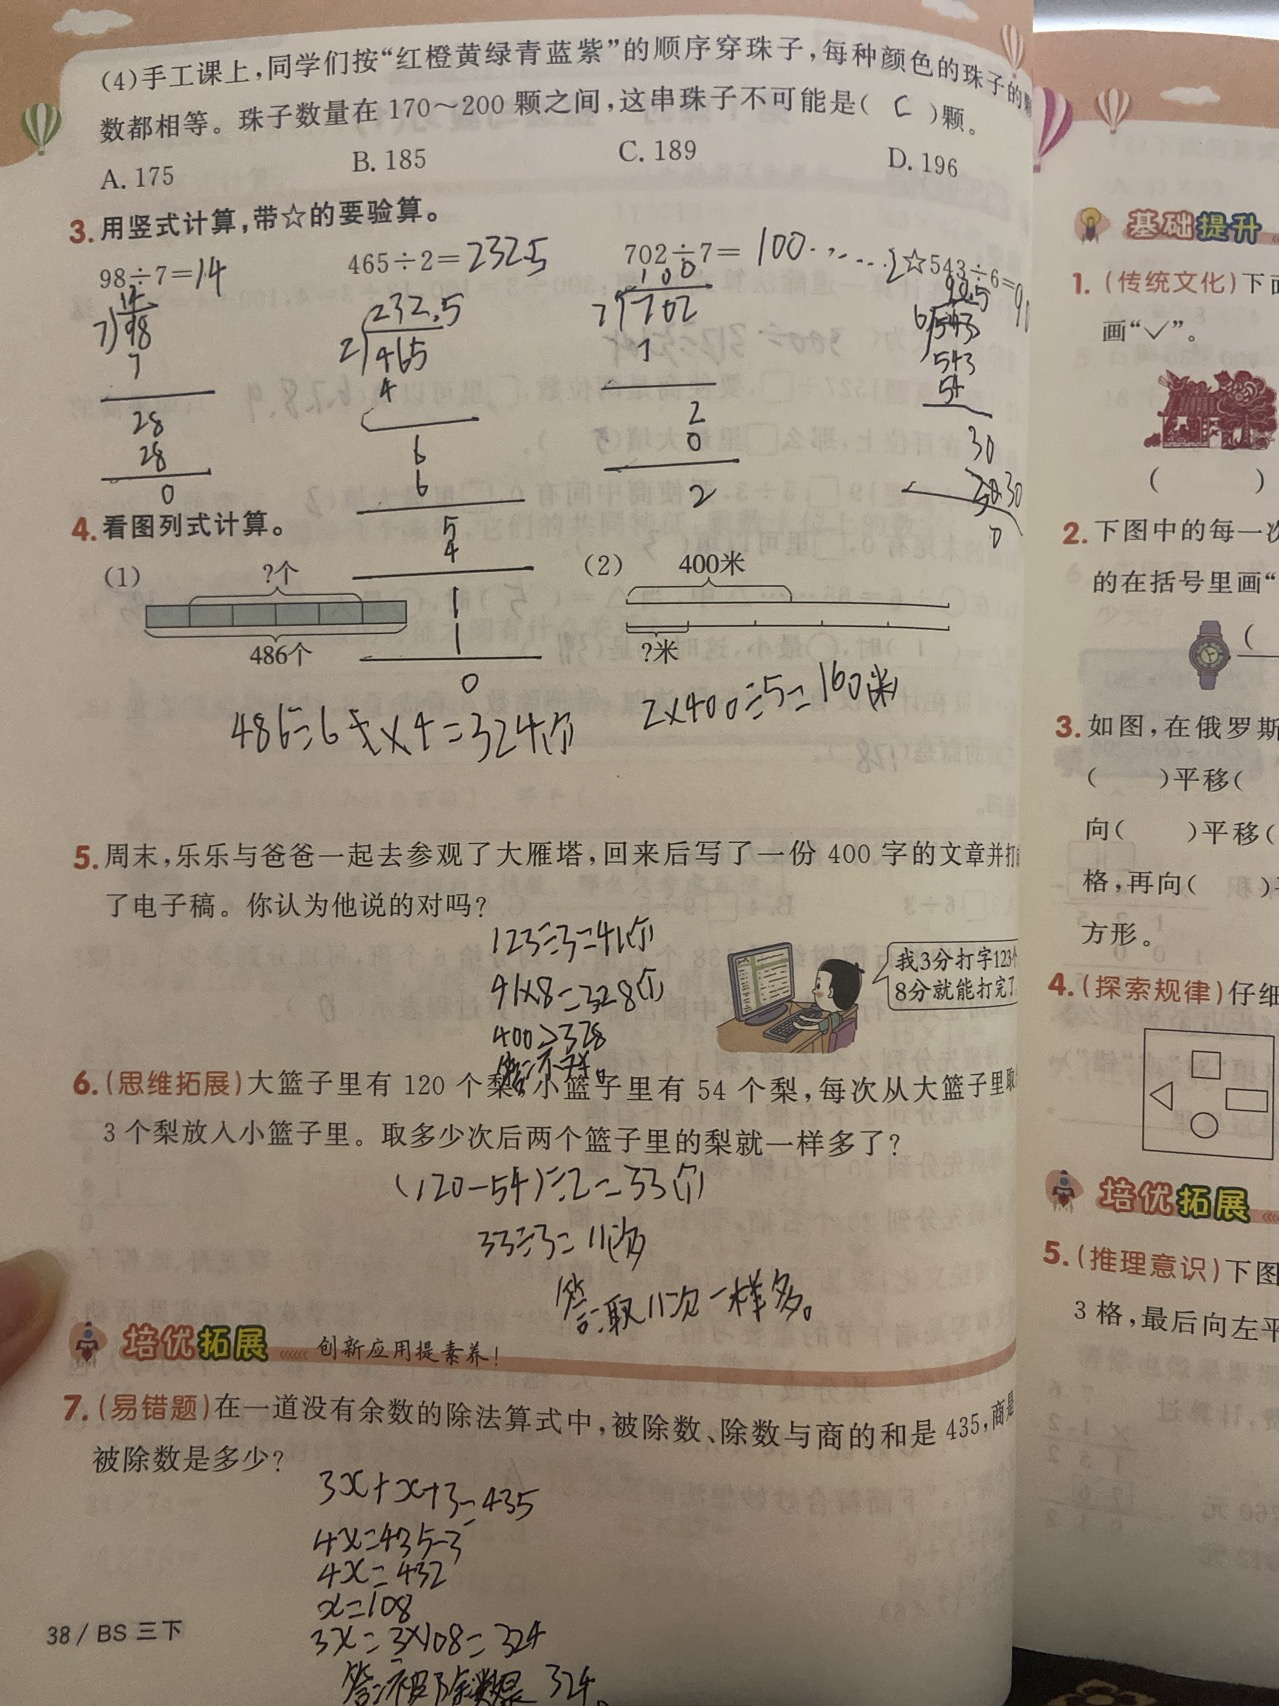 (4)手工课上,同学们按“红橙黄绿青蓝紫”的顺序穿珠子,每种颜色的珠子的
数都相等。珠子数量在170～200颗之间,这串珠子不可能是( C )颗。
A. 175 B. 185 C. 189 D. 196
3. 用竖式计算,带☆的要验算。
98÷7=14 465÷2=232.5 702÷7=100……2 ☆543÷6=90
14 232.5 100 90.5
7 98 2 465 7 702 6 543
7 4 7 543
54
28 6 2 30
28 6 0 30
0 5 2 0
4
1
1
0
4. 看图列式计算。
(1) ?个 (2) 400米
486个 ?米
486÷6×4=324(个) 2×400÷5=160(米)
5. 周末,乐乐与爸爸一起去参观了大雁塔,回来后写了一份400字的文章并打
了电子稿。你认为他说的对吗?
123÷3=41(个)
41×8=328(个)
400>328
答:不对。
我3分打字123
8分就能打完了
6. (思维拓展)大篮子里有120个梨,小篮子里有54个梨,每次从大篮子里取
3个梨放入小篮子里。取多少次后两个篮子里的梨就一样多了?
(120-54)÷2=33(个)
33÷3=11(次)
答:取11次一样多。
培优拓展 创新应用提素养!
7. (易错题)在一道没有余数的除法算式中,被除数、除数与商的和是435,商是
被除数是多少?
3x+x+3=435
4x=435-3
4x=432
x=108
3x=3×108=324
答:被除数是324。
38 / BS 三下
基础提升
1. (传统文化)下
画“✓”。
( )
2. 下图中的每一次
的在括号里画“
(
3. 如图,在俄罗斯
( )平移(
向( )平移(
格,再向( )
方形。
4. (探索规律)仔细
培优拓展
5. (推理意识)下图
3格,最后向左平